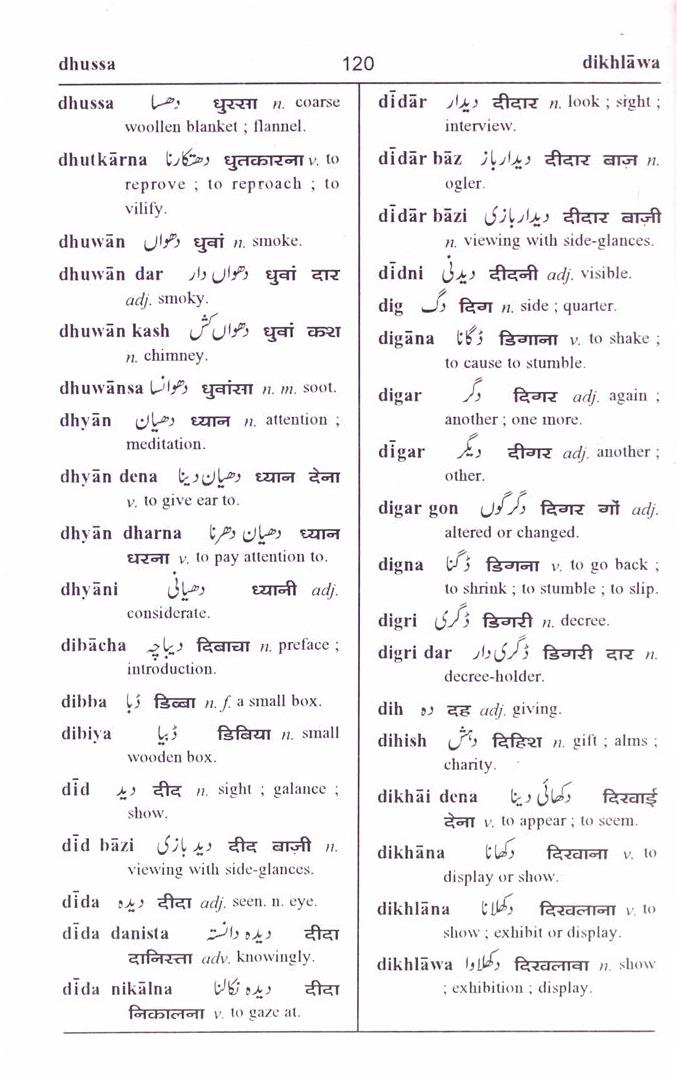 dhussa 120 dikhlāwa
dhussa دھسا धुस्सा n. coarse
woollen blanket ; flannel.
dhutkārna دھتکارنا धुतकारना v. to
reprove ; to reproach ; to
vilify.
dhuwān دھواں धुवां n. smoke.
dhuwān dar دھواں دار धुवां दार
adj. smoky.
dhuwān kash دھواں کش धुवां कश
n. chimney.
dhuwānsa دھوانسا धुवांसा n. m. soot.
dhyān دھیان ध्यान n. attention ;
meditation.
dhyān dena دھیان دینا ध्यान देना
v. to give ear to.
dhyān dharna دھیان دھرنا ध्यान
धरना v. to pay attention to.
dhyāni دھیانی ध्यानी adj.
considerate.
dibācha دیباچہ दिबाचा n. preface ;
introduction.
dibba ڈبا डिब्बा n. f. a small box.
dibiya ڈبیا डिबिया n. small
wooden box.
dīd دید दीद n. sight ; galance ;
show.
dīd bāzi دید بازی दीद बाज़ी n.
viewing with side-glances.
dīda دیدہ दीदा adj. seen. n. eye.
dīda danista دیدہ دانستہ दीदा
दानिस्ता adv. knowingly.
dīda nikālna دیدہ نکالنا दीदा
निकालना v. to gaze at.
dīdār دیدار दीदार n. look ; sight ;
interview.
dīdār bāz دیدار باز दीदार बाज़ n.
ogler.
dīdār bāzi دیدار بازی दीदार बाज़ी
n. viewing with side-glances.
dīdni دیدنی दीदनी adj. visible.
dig دگ दिग n. side ; quarter.
digāna ڈگانا डिगाना v. to shake ;
to cause to stumble.
digar دگر दिगर adj. again ;
another ; one more.
dīgar دیگر दीगर adj. another ;
other.
digar gon دگرگوں दिगर गों adj.
altered or changed.
digna ڈگنا डिगना v. to go back ;
to shrink ; to stumble ; to slip.
digri ڈگری डिगरी n. decree.
digri dar ڈگری دار डिगरी दार n.
decree-holder.
dih دہ दह adj. giving.
dihish دہش दिहिश n. gift ; alms ;
charity.
dikhāi dena دکھائی دینا दिखाई
देना v. to appear ; to seem.
dikhāna دکھانا दिखाना v. to
display or show.
dikhlāna دکھلانا दिखलाना v. to
show ; exhibit or display.
dikhlāwa دکھلاوا दिखलावा n. show
; exhibition ; display.